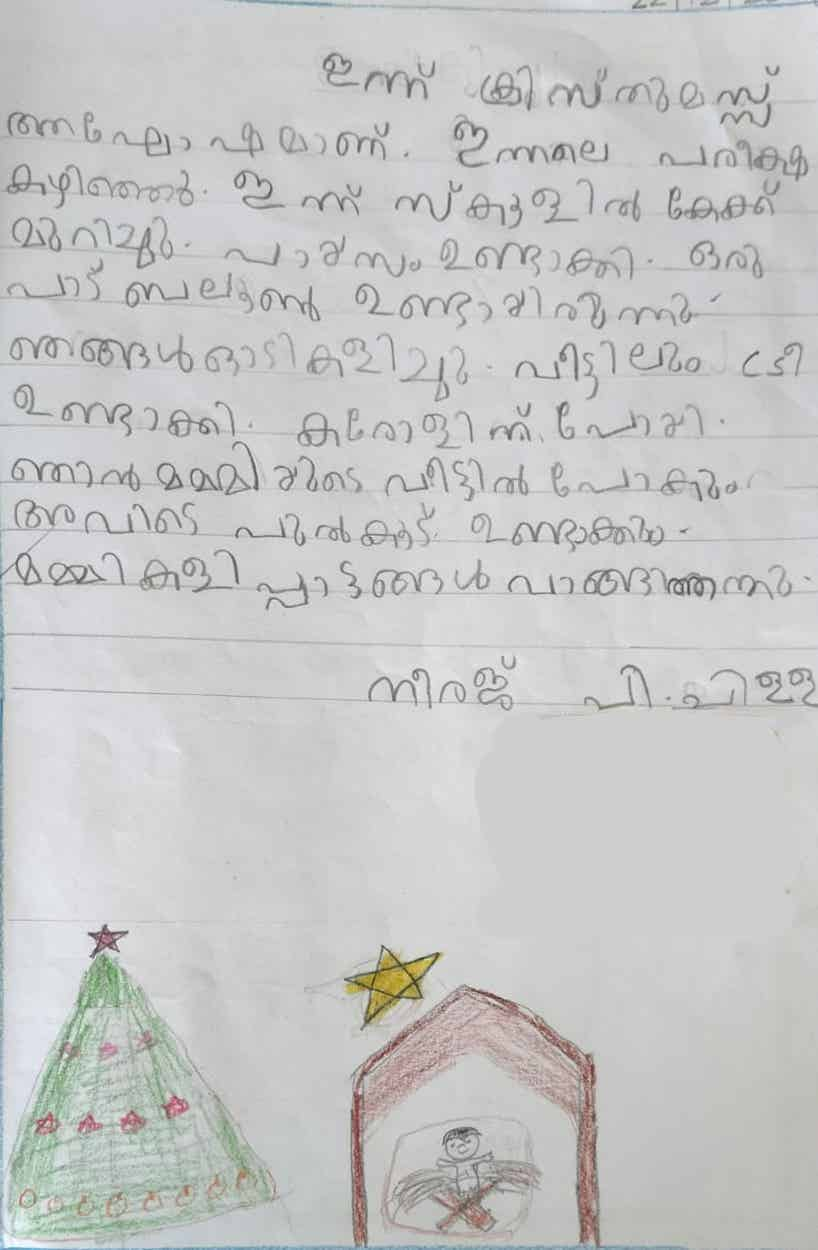 ഇന്ന് ക്രിസ്തുമസ്സ്
ആഘോഷമാണ്. ഇന്നലെ പരീക്ഷ
കഴിഞ്ഞു. ഇന്ന് സ്കൂളിൽ കേക്ക്
മുറിച്ചു. പായസം ഉണ്ടാക്കി. ഒരു
പാട് ബലൂൺ ഉണ്ടായിരുന്നു.
ഞങ്ങൾ ഓടികളിച്ചു. വീട്ടിലും ട്രീ
ഉണ്ടാക്കി. കരോളിന് പോയി.
ഞാൻ മമ്മിയുടെ വീട്ടിൽ പോകും
അവിടെ പുൽകൂട് ഉണ്ടാക്കും.
മമ്മി കളിപ്പാട്ടങ്ങൾ വാങ്ങിത്തന്നു.
നീരജ് പി. പിള്ള